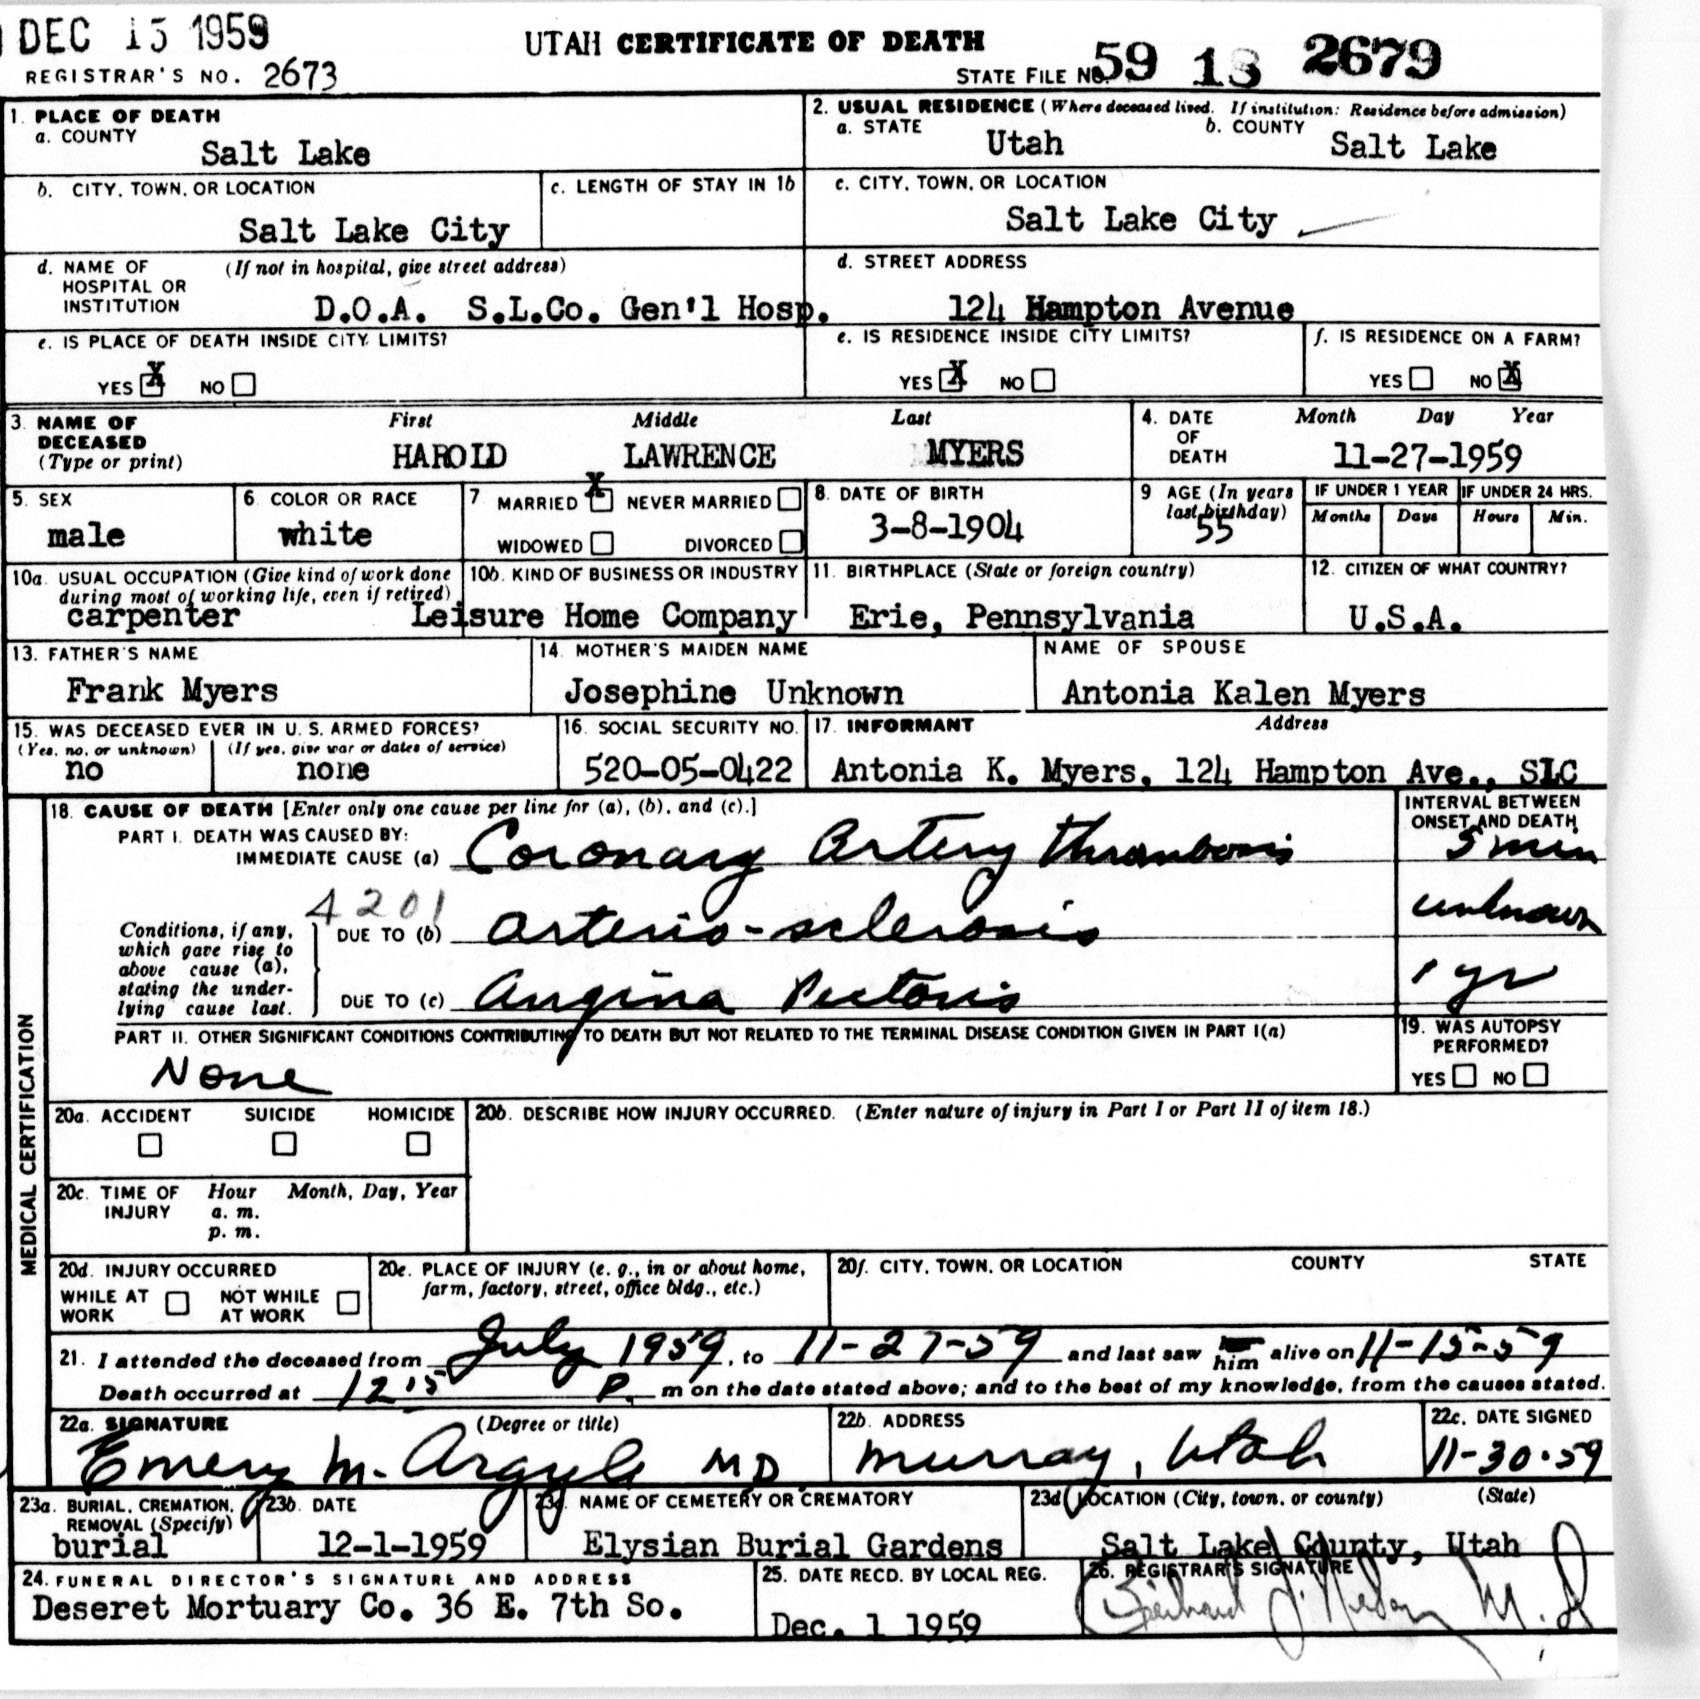 DEC 15 1959
UTAH CERTIFICATE OF DEATH
REGISTRAR'S NO. 2673
STATE FILE NO. 59 18 2679
1. PLACE OF DEATH
a. COUNTY
Salt Lake
2. USUAL RESIDENCE (Where deceased lived. If institution: Residence before admission)
a. STATE Utah b. COUNTY Salt Lake
b. CITY, TOWN, OR LOCATION
Salt Lake City
c. LENGTH OF STAY IN 1b
c. CITY, TOWN, OR LOCATION
Salt Lake City
d. NAME OF HOSPITAL OR INSTITUTION (If not in hospital, give street address)
D.O.A. S.L.Co. Gen'l Hosp.
d. STREET ADDRESS
124 Hampton Avenue
e. IS PLACE OF DEATH INSIDE CITY LIMITS?
YES X NO
e. IS RESIDENCE INSIDE CITY LIMITS?
YES X NO
f. IS RESIDENCE ON A FARM?
YES NO X
3. NAME OF DECEASED (Type or print)
First Middle Last
HAROLD LAWRENCE MYERS
4. DATE OF DEATH
Month Day Year
11-27-1959
5. SEX
male
6. COLOR OR RACE
white
7 MARRIED X NEVER MARRIED
WIDOWED DIVORCED
8. DATE OF BIRTH
3-8-1904
9 AGE (In years last birthday)
55
IF UNDER 1 YEAR
Months Days
IF UNDER 24 HRS.
Hours Min.
10a. USUAL OCCUPATION (Give kind of work done during most of working life, even if retired)
carpenter
10b. KIND OF BUSINESS OR INDUSTRY
Leisure Home Company
11. BIRTHPLACE (State or foreign country)
Erie, Pennsylvania
12. CITIZEN OF WHAT COUNTRY?
U.S.A.
13. FATHER'S NAME
Frank Myers
14. MOTHER'S MAIDEN NAME
Josephine Unknown
NAME OF SPOUSE
Antonia Kalen Myers
15. WAS DECEASED EVER IN U.S. ARMED FORCES?
(Yes, no, or unknown) (If yes, give war or dates of service)
no none
16. SOCIAL SECURITY NO.
520-05-0422
17. INFORMANT Address
Antonia K. Myers, 124 Hampton Ave., SLC
MEDICAL CERTIFICATION
18. CAUSE OF DEATH [Enter only one cause per line for (a), (b), and (c).]
INTERVAL BETWEEN ONSET AND DEATH
PART I. DEATH WAS CAUSED BY:
IMMEDIATE CAUSE (a) Coronary Artery Thrombosis 5 min
4201
Conditions, if any, which gave rise to above cause (a), stating the underlying cause last.
DUE TO (b) Arterio-sclerosis unknown
DUE TO (c) Angina Pectoris 1 yr
PART II. OTHER SIGNIFICANT CONDITIONS CONTRIBUTING TO DEATH BUT NOT RELATED TO THE TERMINAL DISEASE CONDITION GIVEN IN PART I(a)
None
19. WAS AUTOPSY PERFORMED?
YES NO
20a. ACCIDENT SUICIDE HOMICIDE
20b. DESCRIBE HOW INJURY OCCURRED. (Enter nature of injury in Part I or Part II of item 18.)
20c. TIME OF INJURY Hour Month, Day, Year
a. m.
p. m.
20d. INJURY OCCURRED
WHILE AT WORK NOT WHILE AT WORK
20e. PLACE OF INJURY (e. g., in or about home, farm, factory, street, office bldg., etc.)
20f. CITY, TOWN, OR LOCATION COUNTY STATE
21. I attended the deceased from July 1959, to 11-27-59 and last saw him alive on 11-15-59
Death occurred at 12:15 P. m on the date stated above; and to the best of my knowledge, from the causes stated.
22a. SIGNATURE (Degree or title)
Emery M. Argyle MD
22b. ADDRESS
Murray, Utah
22c. DATE SIGNED
11-30-59
23a. BURIAL, CREMATION, REMOVAL (Specify)
burial
23b. DATE
12-1-1959
23c. NAME OF CEMETERY OR CREMATORY
Elysian Burial Gardens
23d. LOCATION (City, town, or county) (State)
Salt Lake County, Utah
24. FUNERAL DIRECTOR'S SIGNATURE AND ADDRESS
Deseret Mortuary Co. 36 E. 7th So.
25. DATE RECD. BY LOCAL REG.
Dec. 1 1959
26. REGISTRAR'S SIGNATURE
M.D.